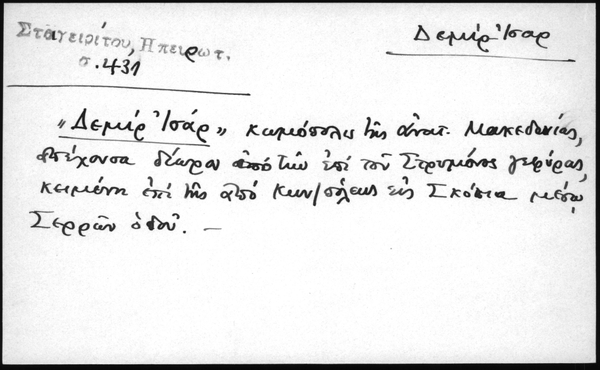 Σταγειρίτου, Ηπειρωτ.
σ. 431
Δεμίρ Ἰσαρ
„Δεμίρ Ἰσάρ" κωμόπολις τῆς ἀνατ. Μακεδονίας,
ἀπέχουσα δίωρον ἀπό τῆς ἐπί τοῦ Στρυμόνος γεφύρας,
κειμένη ἐπί τῆς ἀπό Κων/πόλεως εἰς Σκόπια μέσῳ
Σερρῶν ὁδοῦ. —